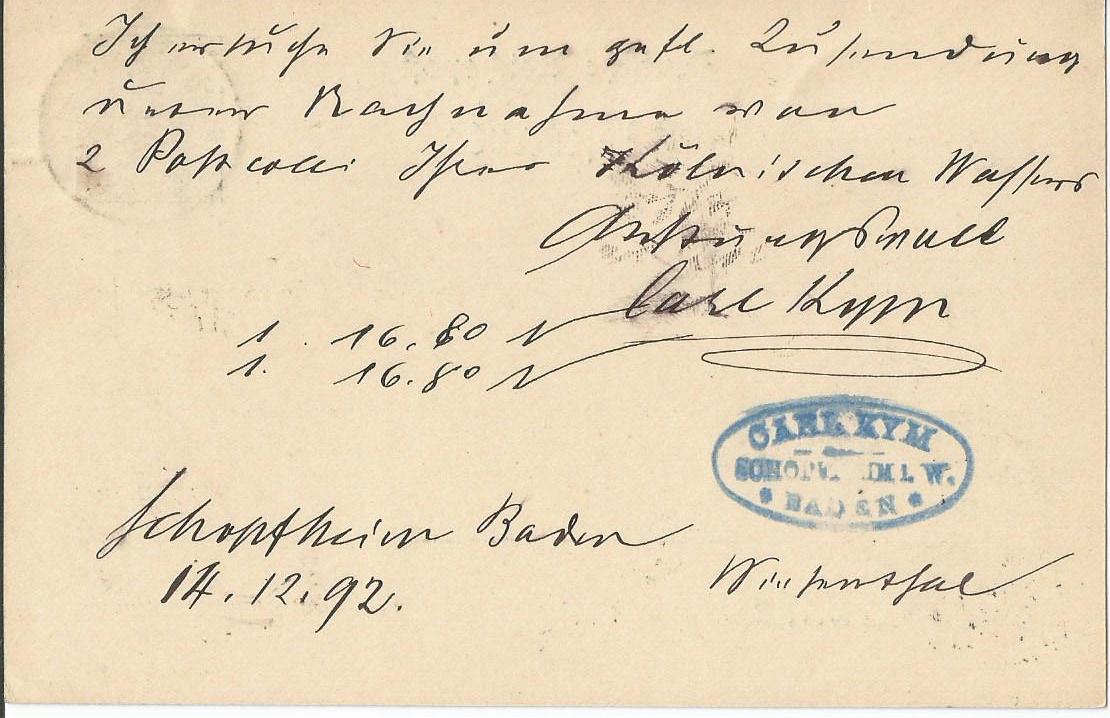 Ich ersuche Sie um gefl. Zusendung
unter Nachnahme von
2 Postcolli Ihres Kölnischen Wassers
Achtungsvoll
Carl Kym
1. 16.80
1. 16.80
CARL KYM
SCHOPF IM I. W.
BADEN
Schopfheim Baden
14.12.92.
Wiesenthal